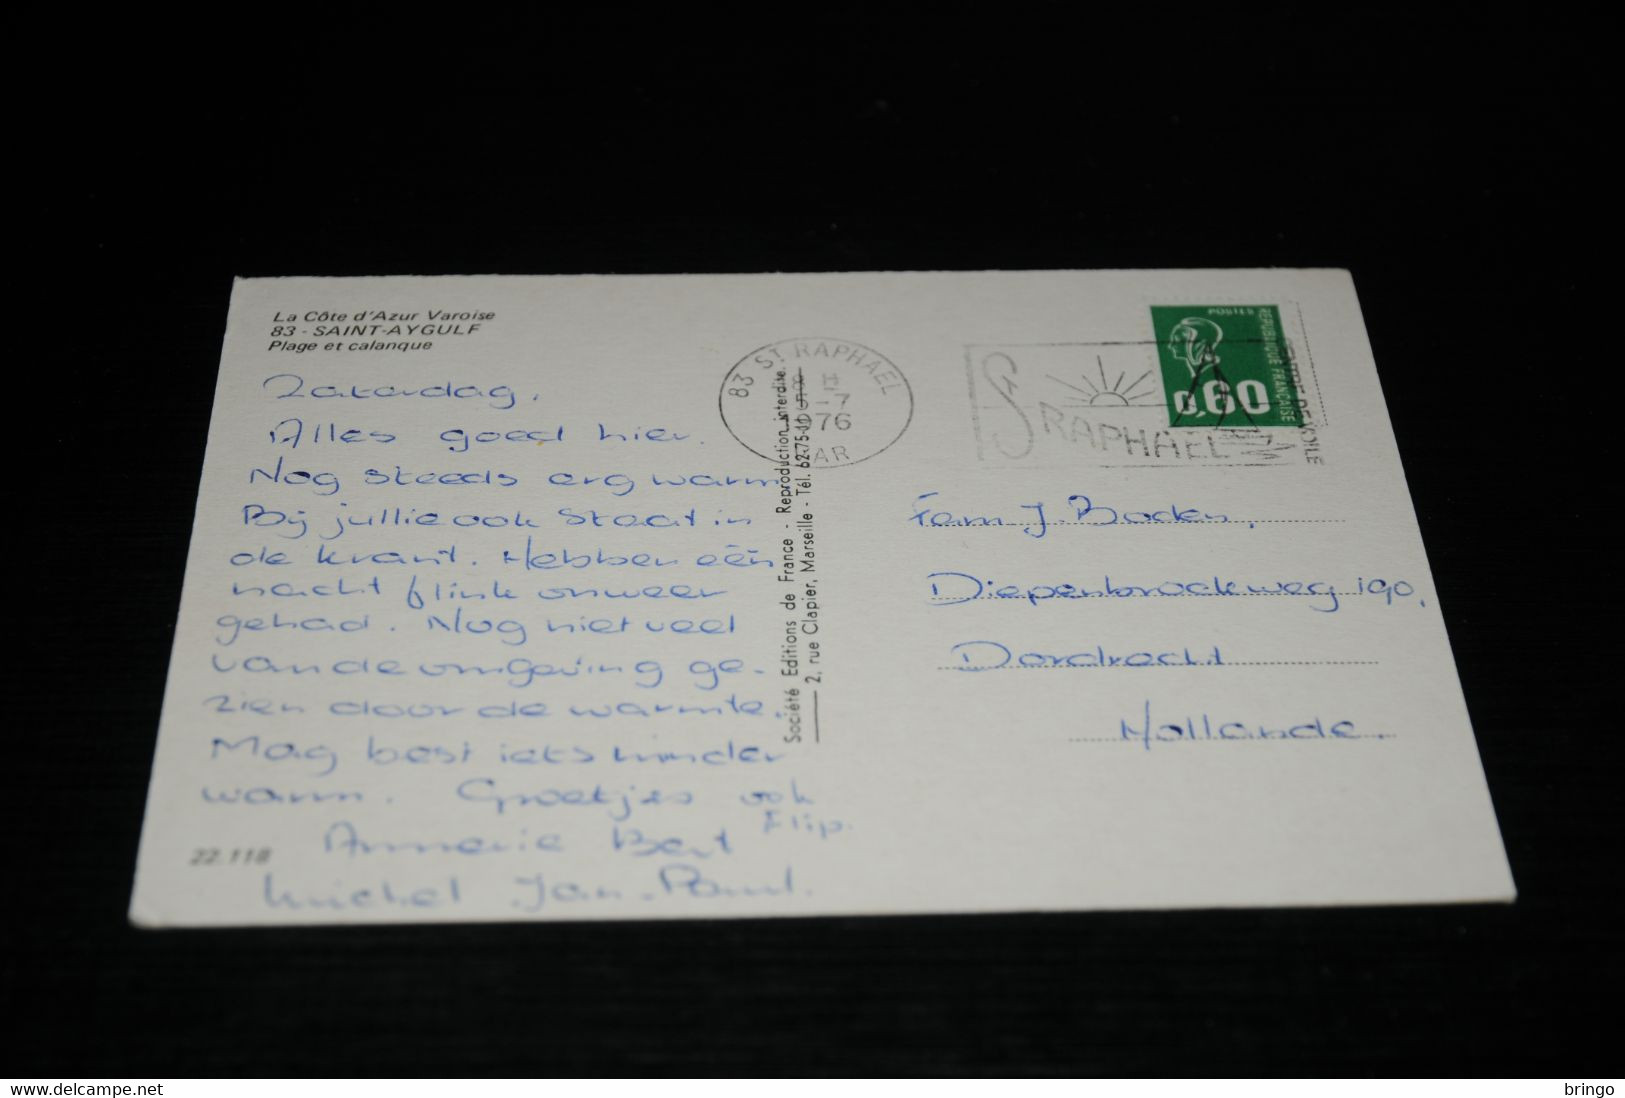 La Côte d'Azur Varoise
83 - SAINT-AYGULF
Plage et calanque
Zaterdag.
Alles goed hier.
Nog steeds erg warm
Bij jullie ook staat in
de krant. Hebben één
nacht flink onweer
gehad. Nog niet veel
van de omgeving ge-
zien door de warmte.
Mag best iets minder
warm. Groetjes ook
Flip.
Annerie Bert
Michel Jan-Paul.
22.118
Société Editions de France - Reproduction interdite.
2, rue Clapier, Marseille - Tél. 62-75-11
83 ST RAPHAEL
-7
1976
VAR
ST RAPHAEL
CENTRE DE VOILE
POSTES
REPUBLIQUE FRANCAISE
0,60
Fam J. Boden,
Diepenbrockweg 190,
Dordrecht
Hollande.
bringo